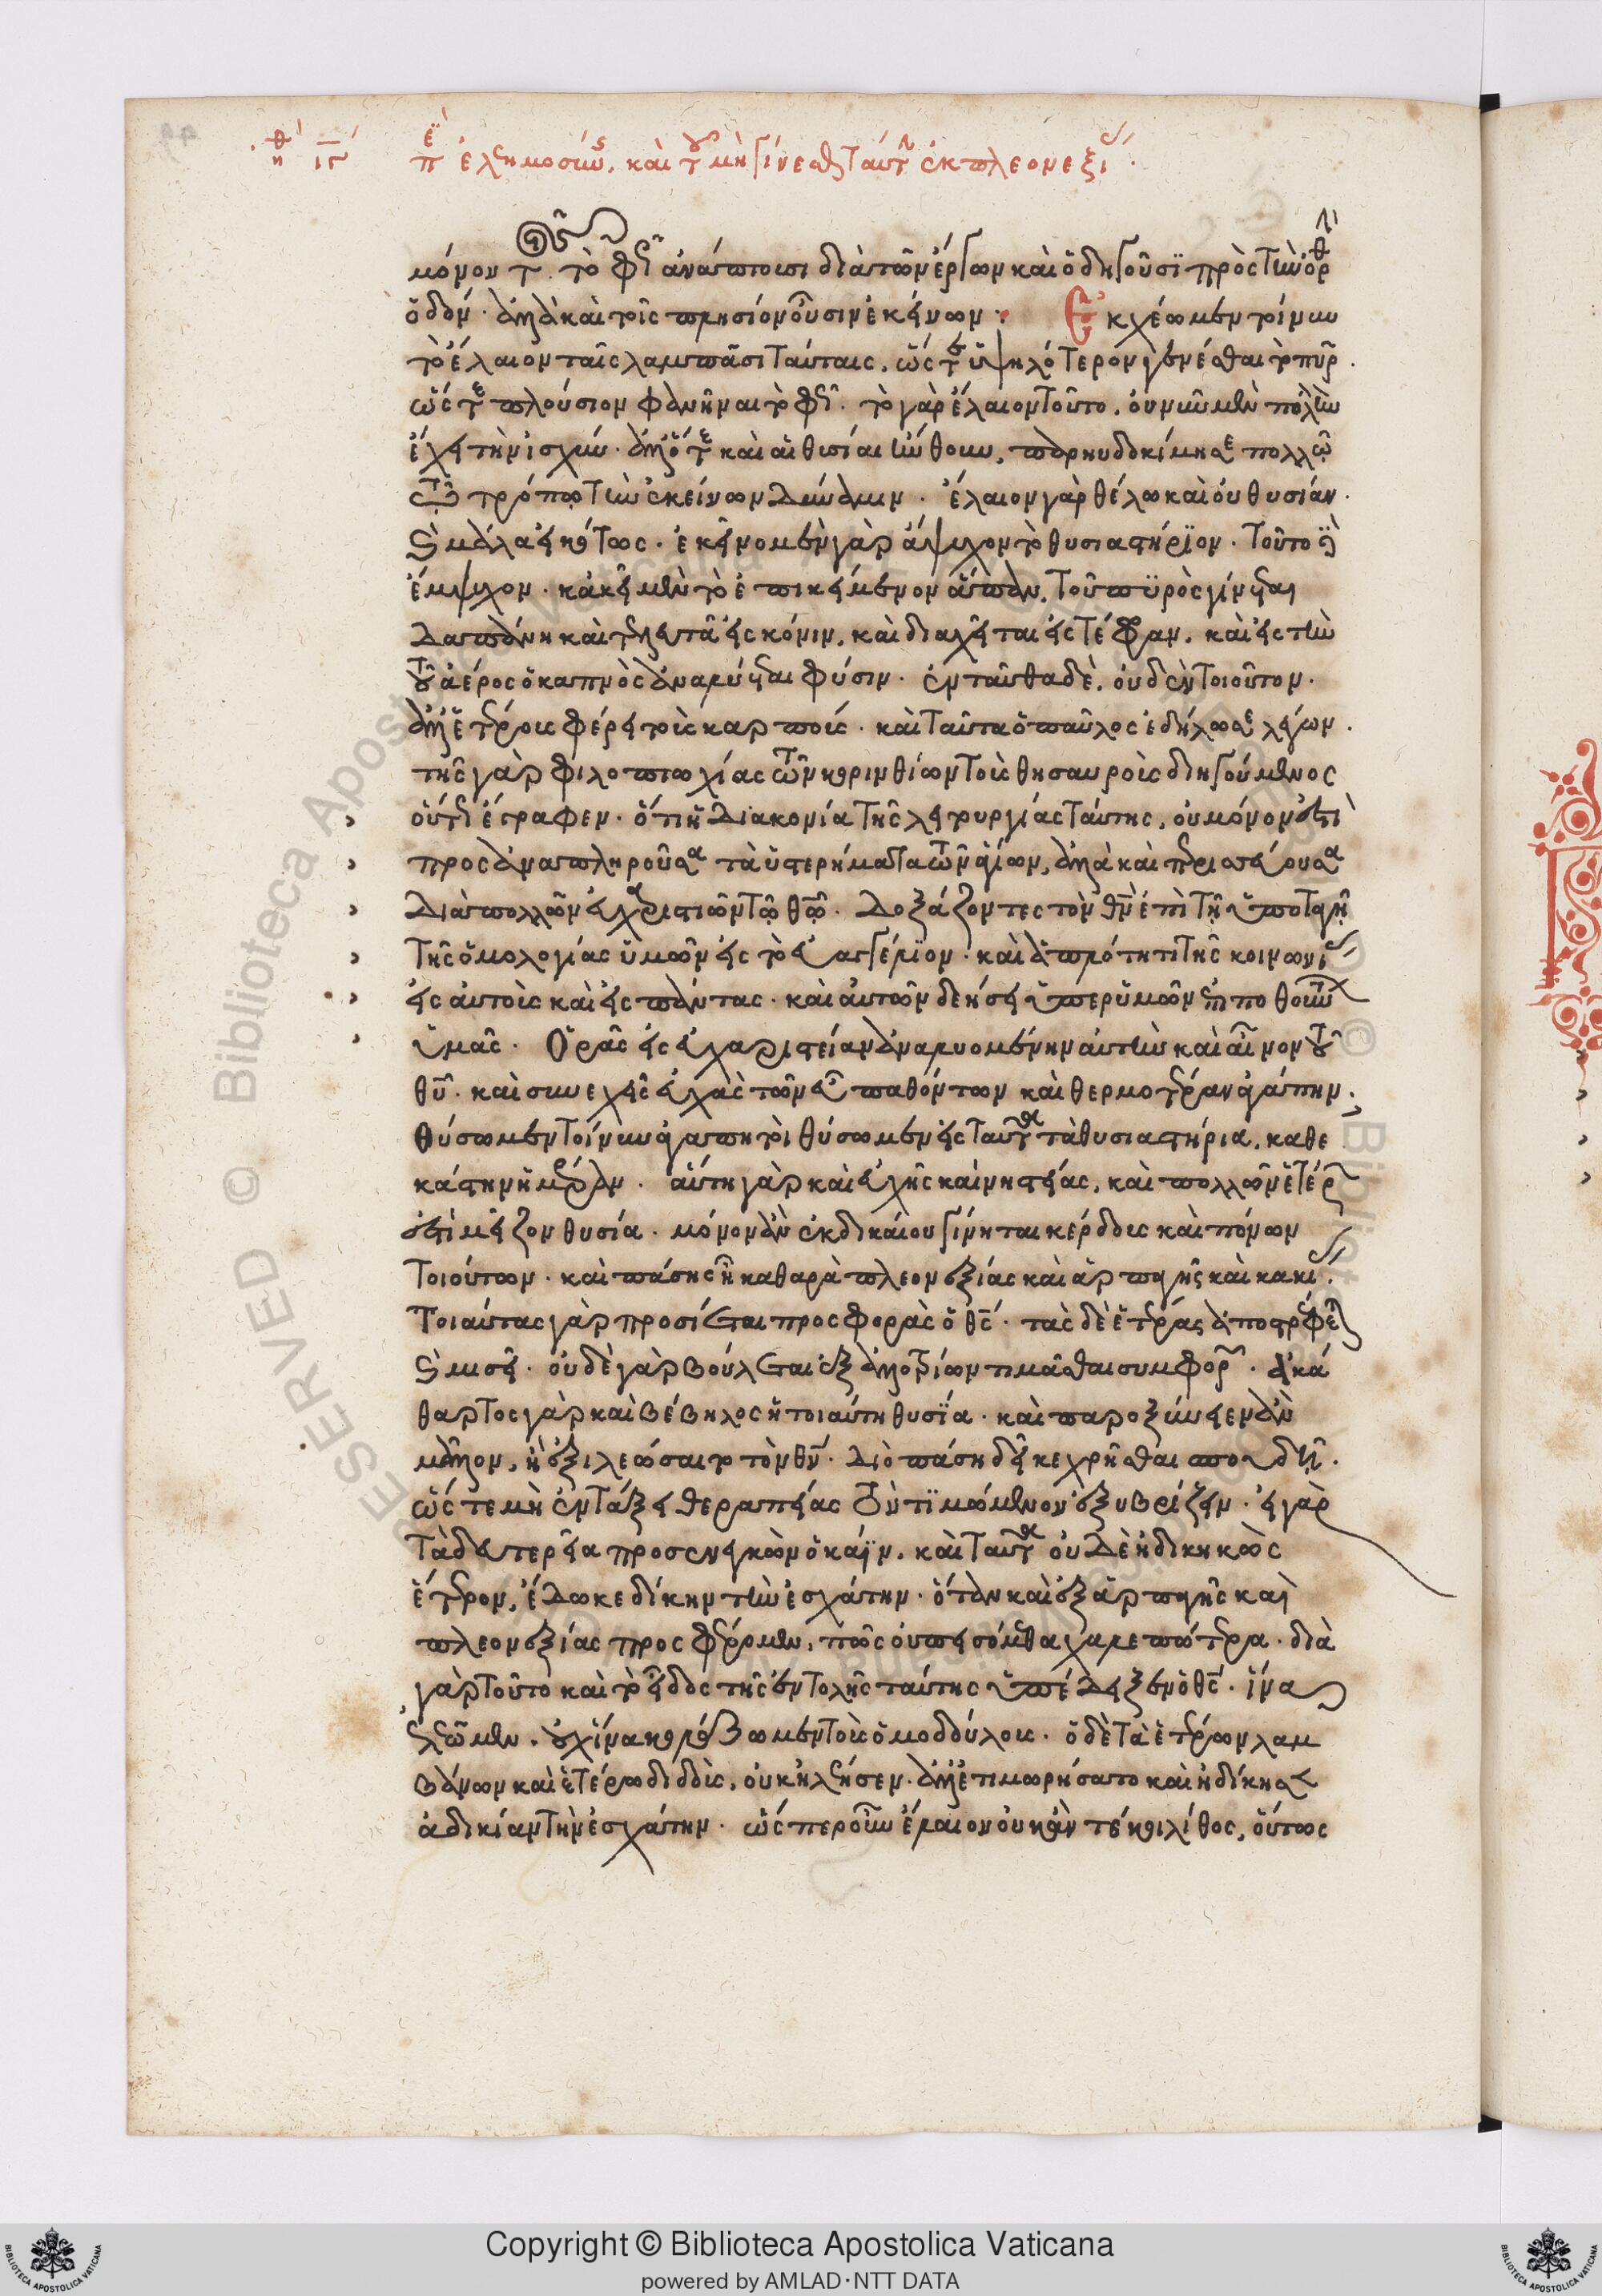 ἐλεημοσύνης, καὶ τοῦ μὴ γίνεσθαι ταύτην ἐκ πλεονεξίας.
μόνον τὸ φῶς ἀνάπτουσι διὰ τῶν ἔργων καὶ ὁδηγοῦσι πρὸς τὴν ὀρθὴν
ὁδόν. ἀλλὰ καὶ τοῖς πλησίον οὖσιν ἐκείνων. Ἐκχέωμεν τοίνυν
τὸ ἔλαιον ταῖς λαμπάσι ταύταις, ὥστε ὑψηλότερον γενέσθαι τὸ πῦρ.
ὥστε πλούσιον φανῆναι τὸ φῶς. τὸ γὰρ ἔλαιον τοῦτο, οὐ νῦν μὲν πολλὴν
ἔχει τὴν ἰσχύν. ἀλλ' ὅτε καὶ αἱ θυσίαι ἤνθουν, παρηυδοκίμησε πολλῷ
τῷ τρόπῳ τὴν ἐκείνων δύναμιν. ἔλαιον γὰρ θέλω καὶ οὐ θυσίαν.
καὶ μάλα εἰκότως. ἐκεῖνο μὲν γὰρ ἄψυχον τὸ θυσιαστήριον. τοῦτο δὲ
ἔμψυχον. κἀκεῖ μὲν τὸ ἐπικείμενον ἅπαν, τοῦ πυρὸς γίνεται
δαπάνη καὶ τελευτᾶ εἰς κόνιν, καὶ διαχεῖται εἰς τέφραν, καὶ εἰς τὴν
τοῦ ἀέρος ὁ καπνὸς ἀναλύεται φύσιν. ἐνταῦθα δὲ, οὐδὲν τοιοῦτον.
ἀλλ' ἑτέρους φέρει τοὺς καρπούς. καὶ ταῦτα ὁ παῦλος ἐδήλωσε λέγων.
τῆς γὰρ φιλοπτωχίας τῶν κορινθίων τοὺς θησαυροὺς διηγούμενος
οὕτω ἔγραφεν. ὅτι ἡ διακονία τῆς λειτουργίας ταύτης, οὐ μόνον ἐστὶ
προσαναπληροῦσα τὰ ὑστερήματα τῶν ἁγίων, ἀλλὰ καὶ περισσεύουσα
διὰ πολλῶν εὐχαριστιῶν τῷ θεῷ. δοξάζοντες τὸν θεὸν ἐπὶ τῇ ὑποταγῇ
τῆς ὁμολογίας ὑμῶν εἰς τὸ εὐαγγέλιον. καὶ ἁπλότητι τῆς κοινωνίας
εἰς αὐτοὺς καὶ εἰς πάντας. καὶ αὐτῶν δεήσει ὑπὲρ ὑμῶν ἐπιποθούντων
ὑμᾶς. Ὁρᾷς εἰς εὐχαριστίαν ἀναλυομένην αὐτὴν καὶ αἶνον τοῦ
θεοῦ. καὶ συνεχεῖς εὐχὰς τῶν εὖ παθόντων καὶ θερμοτέραν ἀγάπην.
θύσωμεν τοίνυν ἀγαπητοὶ θύσωμεν εἰς ταῦτα τὰ θυσιαστήρια, καθε
κάστην ἡμέραν. αὕτη γὰρ καὶ εὐχῆς καὶ νηστείας, καὶ πολλῶν ἑτέρων
ἐστὶ μείζων θυσία. μόνον ἂν ἐκ δικαίου γίνηται κέρδους καὶ πόνων
τοιούτων. καὶ πάσης ᾖ καθαρὰ πλεονεξίας καὶ ἁρπαγῆς καὶ κακίας.
Τοιαύτας γὰρ προσίεται προσφορὰς ὁ θεός. τὰς δὲ ἑτέρας ἀποστρέφεται
καὶ μισεῖ. οὐδὲ γὰρ βούλεται ἐξ ἀλλοτρίων τιμᾶσθαι συμφορῶν. ἀκά
θαρτος γὰρ καὶ βέβηλος ἡ τοιαύτη θυσία. καὶ παροξύνειεν ἂν
μᾶλλον, ἢ ἐξιλεώσαιτο τὸν θεόν. διὸ πάση δεῖ κεχρῆσθαι σπουδῇ.
ὥστε μὴ ἐν τάξει θεραπείας τὸν τιμώμενον ἐξυβρίζειν. εἰ γὰρ
τὰ δευτερεῖα προσενεγκὼν ὁ κάϊν, καὶ ταῦτα οὐδὲν ἠδικηκὼς
ἕτερον, ἔδωκε δίκην τὴν ἐσχάτην. ὅταν καὶ ἐξ ἁρπαγῆς καὶ
πλεονεξίας προσφέρωμεν, πῶς οὐ πεισόμεθα χαλεπώτερα. διὰ
γὰρ τοῦτο καὶ τὸ εἶδος τῆς ἐντολῆς ταύτης ὑπέδειξεν ὁ θεός. ἵνα
ἐλεῶμεν. οὐχ ἵνα κολάζωμεν τοὺς ὁμοδούλους. ὁ δὲ τὰ ἑτέρων λαμ
βάνων καὶ ἑτέρω διδοὺς, οὐκ ἠλέησεν. ἀλλ' ἐτιμωρήσατο καὶ ἠδίκησεν
ἀδικίαν τὴν ἐσχάτην. ὥσπερ οὖν ἔλαιον οὐκ ἂν τέκοι λίθος, οὕτως
Copyright © Biblioteca Apostolica Vaticana
powered by AMLAD·NTT DATA